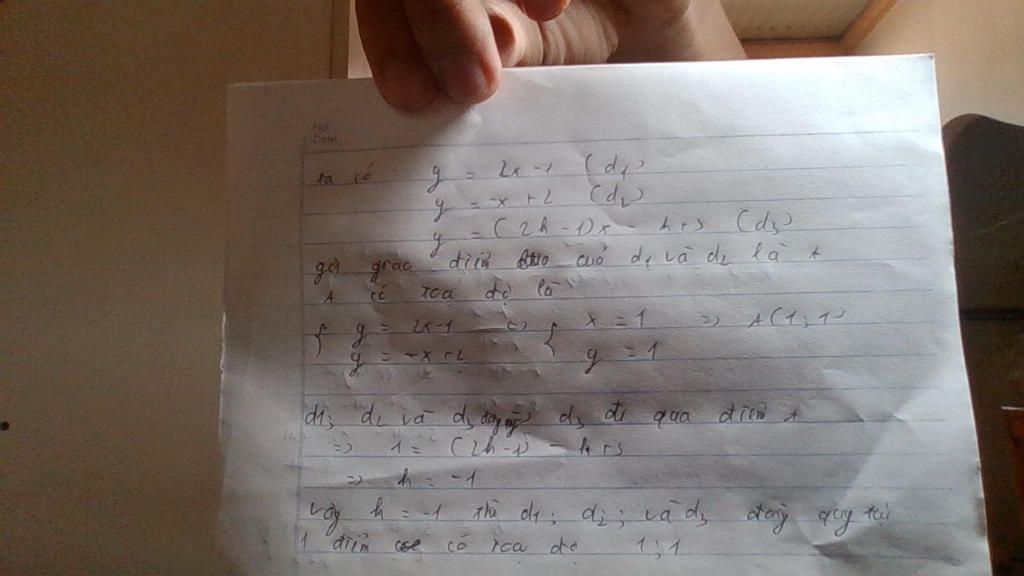 No
Date
ta có : y = 2x - 1 (d1)
y = -x + 2 (d2)
y = (2k - 1)x - k + 3 (d3)
gọi giao điểm của d1 và d2 là A
A có toạ độ là
{ y = 2x - 1 <=> { x = 1 => A(1; 1)
y = -x + 2 y = 1
d1; d2 và d3 đồng quy => d3 đi qua điểm A
=> 1 = (2k - 1) - k + 3
=> k = -1
vậy k = -1 thì d1; d2; và d3 đồng quy tại
1 điểm có toạ độ 1; 1